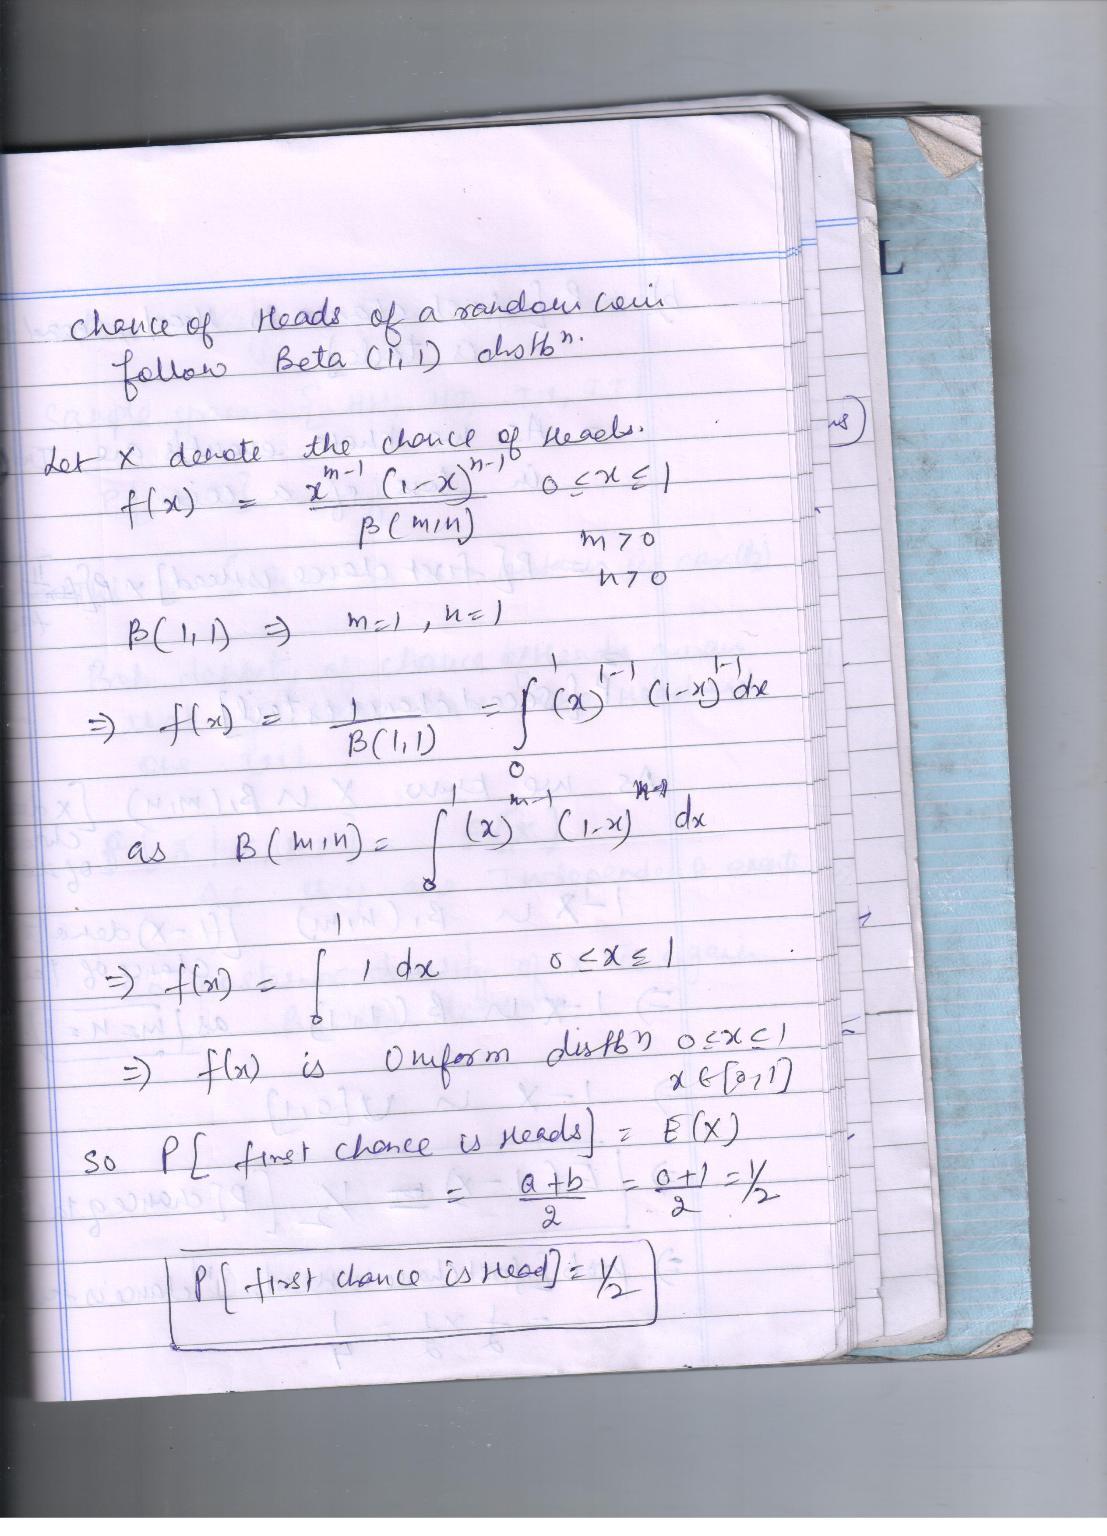 Chance of Heads of a random coin
follow Beta (1,1) distbn.
Let X denote the chance of Heads.
f(x) = x^{m-1} (1-x)^{n-1} / β(m,n) 0 ≤ x ≤ 1
m > 0
n > 0
B(1,1) ⇒ m=1, n=1
⇒ f(x) = 1 / B(1,1) = ∫_0^1 (x)^{1-1} (1-x)^{1-1} dx
as B(m,n) = ∫_0^1 (x)^{m-1} (1-x)^{n-1} dx
⇒ f(x) = ∫_0^1 1 dx 0 ≤ x ≤ 1
⇒ f(x) is Uniform distbn 0 ≤ x ≤ 1
x ∈ [0,1]
So P[first chance is Heads] = E(X)
= (a+b)/2 = (0+1)/2 = 1/2
P[first chance is Head] = 1/2
L